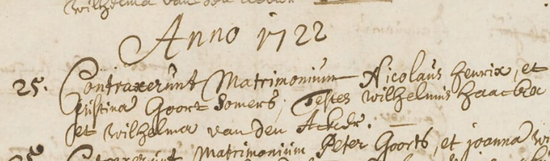 Wilhelma van den
Anno 1722
25. Contraxerunt Matrimonium Nicolaus Henrix, et
Cristina Goort Somers, Testes Wilhelmus Haackx
et Wilhelma van den Acker.
Matrimonium Peter Goorts, et joanna